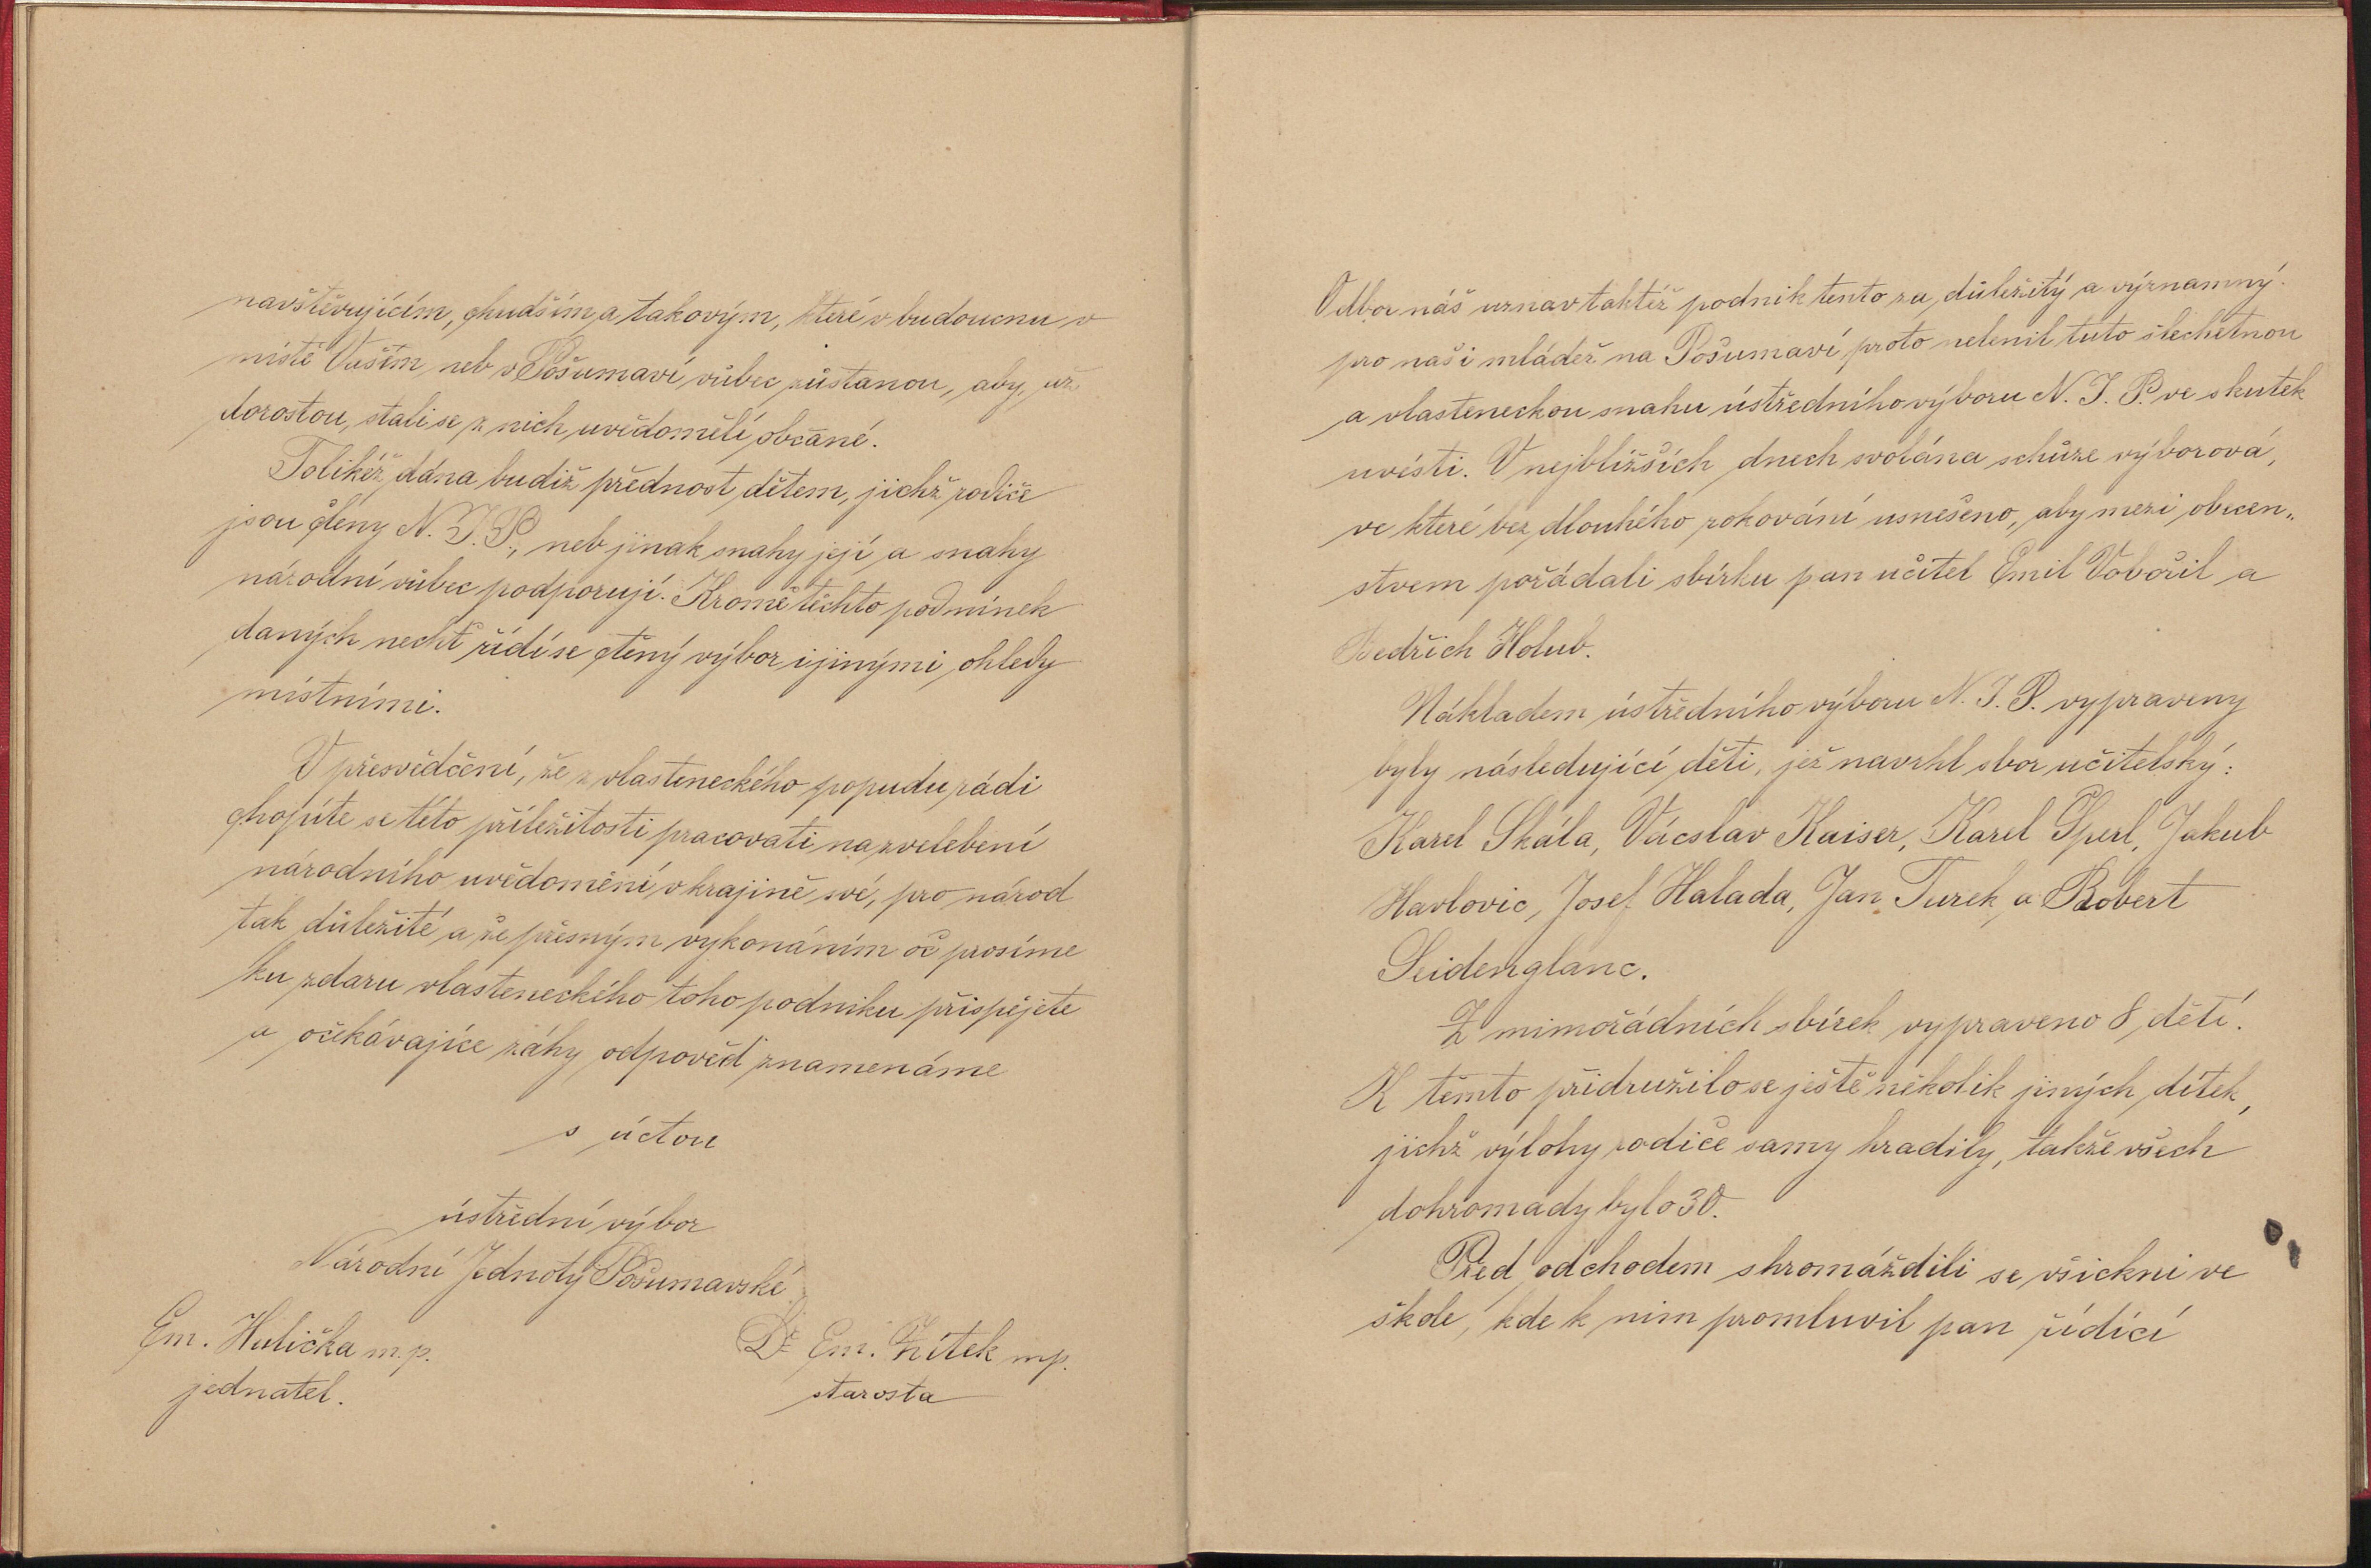 navštěvujícím, chudším a takovým, které v budoucnu v
místě Vašim neb v Pošumaví vůbec zůstanou, aby, až
dorostou, stali se z nich uvědomělí občané.
Tolikéž dána budiž přednost dětem, jichž rodiče
jsou členy N. J. P., neb jinak snahy její a snahy
národní vůbec podporují. Kromě těchto podmínek
daných nechť řídí se ctěný výbor i jinými ohledy
místními.
V přesvědčení, že z vlasteneckého popudu rádi
chopíte se této příležitosti pracovati na zvelebení
národního uvědomění v krajině své, pro národ
tak důležité a že přesným vykonáním oč prosíme
ku zdaru vlasteneckého toho podniku přispějete
a očekávajíce záhy odpověď znamenáme
s úctou
ústřední výbor
Národní Jednoty Pošumavské.
Em. Hulička m. p.
Dr Em. Žítek mp.
jednatel.
starosta
Odbor náš uznav taktéž podnik tento za důležitý a významný
pro naši mládež na Pošumaví proto nelenil tuto šlechetnou
a vlasteneckou snahu ústředního výboru N. J. P. ve skutek
uvésti. V nejbližších dnech svolána schůze výborová,
ve které bez dlouhého rokování usnešeno, aby mezi obecen„
stvem pořádali sbírku pan učitel Emil Vobořil a
Bedřich Holub.
Nákladem ústředního výboru N. J. P. vypraveny
byly následující děti, jež navrhl sbor učitelský:
Karel Skála, Vácslav Kaiser, Karel Šperl, Jakub
Havlovic, Josef Halada, Jan Turek a Robert
Seidenglanc.
Z mimořádních sbírek vypraveno 8 dětí.
K těmto přidružilo se ještě několik jiných dítek,
jichž výlohy rodiče samy hradily, takže všech
dohromady bylo 30.
Před odchodem shromáždili se všickni ve
škole, kde k nim promluvil pan řídící